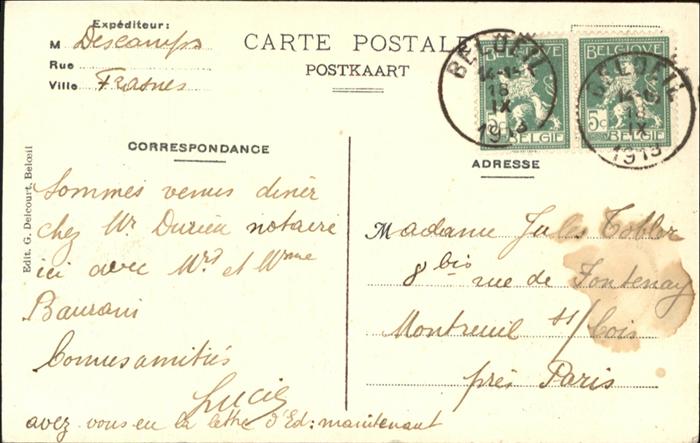 Expéditeur:
M Descamps
Rue
Ville Frasnes
CARTE POSTALE
POSTKAART
BELGIQUE
5c
BELGIË
BELGIQUE
5c
BELGIË
BELOEIL
18
IX
1913
BELOEIL
18
IX
1913
Edit. G. Delcourt, Belœil
CORRESPONDANCE
Sommes venus diner
chez Mr Durieu notaire
ici avec Mr et Mme
Baurani
Bonnes amitiés
Lucie
avez vous eu la lettre d'Ed: maintenant
ADRESSE
Madame Jules Tobler
8 bis rue de Fontenay
Montreuil s/ Bois
près Paris